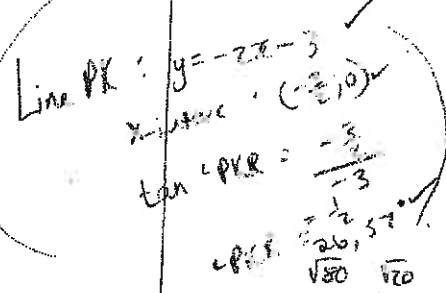 Line PK : y = -2x - 3 ✓
x-intave : (-3/2, 0) ✓
tan ∠PKR = (-3/2)/(-3)
= 1/2
∠PKR = 26,57° ✓
√80 √20